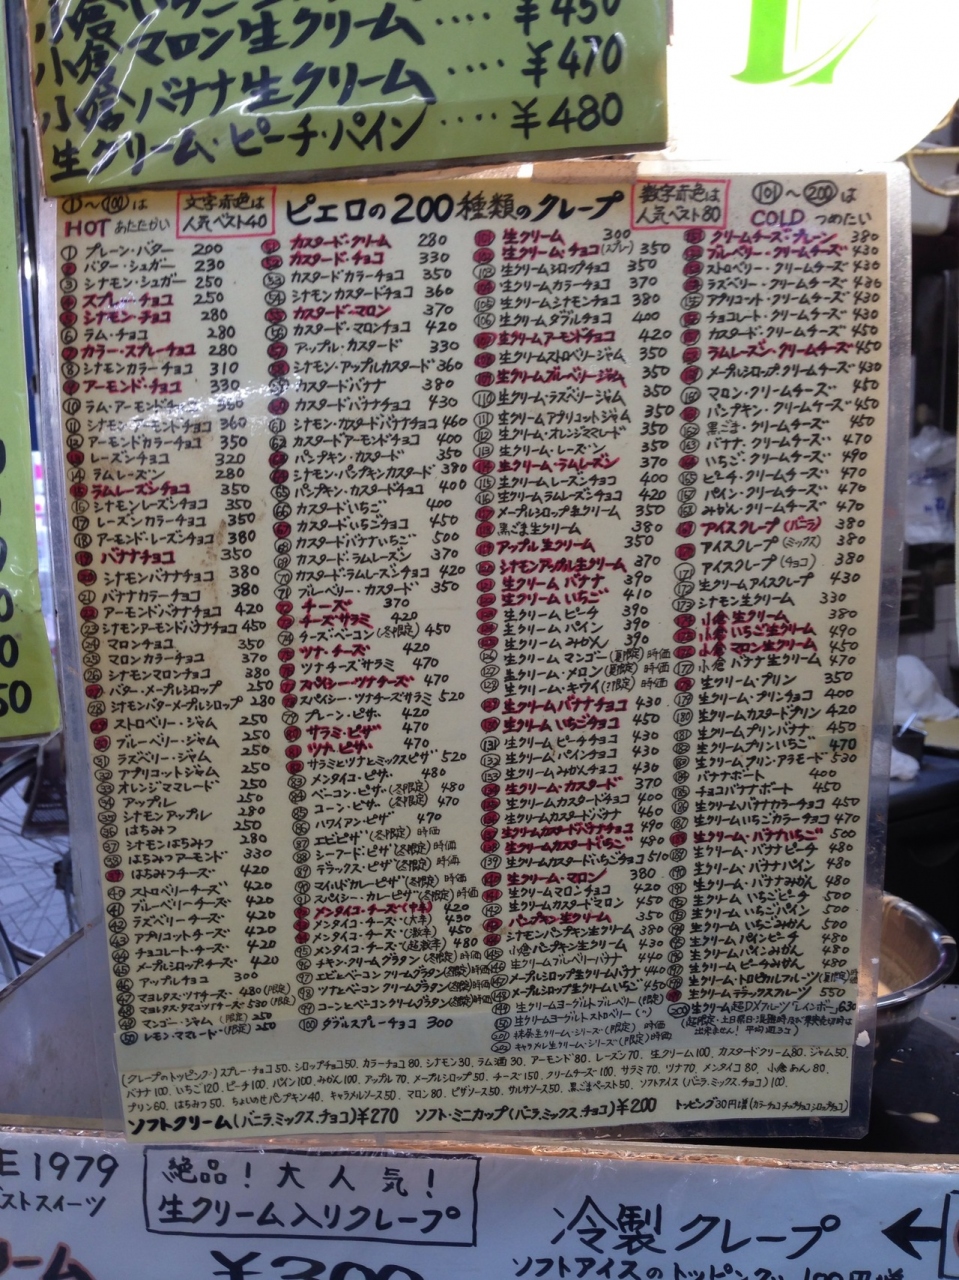 小倉マロン生クリーム‥‥¥470
小倉バナナ生クリーム‥‥¥480
生クリーム・ピーチ・パイン‥‥¥480
①〜⑩⓪は
HOT あたたかい
文字赤色は
人気ベスト40
ピエロの200種類のクレープ
数字赤色は
人気ベスト80
(101)〜(200)は
COLD つめたい
① プレーン・バター 200
バター・シュガー 230
③ シナモン・シュガー 250
スプレー・チョコ 250
シナモン・チョコ 280
⑥ ラム・チョコ 280
カラー・スプレーチョコ 280
⑧ シナモンカラーチョコ 310
アーモンド・チョコ 330
⑩ ラム・アーモンドチョコ
⑪ シナモン・アーモンドチョコ 360
⑫ アーモンドカラーチョコ 350
レーズンチョコ 320
⑭ ラムレーズン 280
ラムレーズンチョコ 350
⑯ シナモンレーズンチョコ 350
⑰ レーズンカラーチョコ 350
⑱ アーモンド・レーズンチョコ 380
バナナチョコ 350
シナモンバナナチョコ 380
㉑ バナナカラーチョコ 380
アーモンドバナナチョコ 420
㉓ シナモンアーモンドバナナチョコ 450
㉔ マロンチョコ 350
㉕ マロンカラーチョコ 370
㉖ シナモンマロンチョコ 380
バター・メープルシロップ 250
㉘ シナモンバターメープルシロップ 280
ストロベリー・ジャム 250
ブルーベリー・ジャム 250
ラズベリー・ジャム 250
アプリコットジャム 250
オレンジママレード 250
アップル 250
シナモンアップル 280
はちみつ 250
シナモンはちみつ 280
はちみつアーモンド 330
はちみつチーズ 420
ストロベリーチーズ 420
ブルーベリーチーズ 420
ラズベリーチーズ 420
アプリコットチーズ 420
チョコレート・チーズ 420
メープルシロップチーズ 420
アップルチョコ 300
マヨレタス・ツナチーズ 480(限定)
マヨレタス・タマゴツナチーズ 530(限定)
マンゴー・ジャム (限定) 250
レモン・ママレード (限定) 250
カスタード・クリーム 280
カスタード・チョコ 330
カスタードカラーチョコ 350
シナモンカスタードチョコ 360
カスタード・マロン 370
カスタード・マロンチョコ 420
アップル・カスタード 330
シナモン・アップルカスタード 360
カスタードバナナ 380
カスタードバナナチョコ 430
シナモン・カスタードバナナチョコ 460
カスタードアーモンドチョコ 400
パンプキン・カスタード 350
シナモン・パンプキンカスタード 380
パンプキン・カスタードチョコ 400
カスタードいちご 400
カスタードいちごチョコ 450
カスタードバナナいちご 500
カスタード・ラムレーズン 370
カスタード・ラムレーズンチョコ 420
ブルーベリー・カスタード 350
チーズ 370
チーズ・サラミ 420
チーズ・ベーコン(冬限定) 450
ツナ・チーズ 420
ツナチーズサラミ 470
スパイシー・ツナチーズ 470
スパイシー・ツナチーズサラミ 520
プレーン・ピザ 420
サラミ・ピザ 470
ツナ・ピザ 470
サラミとツナとミックスピザ 520
メンタイコ・ピザ 480
ベーコン・ピザ (冬限定) 480
コーン・ピザ (冬限定) 470
ハワイアン・ピザ 470
エビピザ(冬限定) 時価
シーフード・ピザ(冬限定)時価
デラックス・ピザ (冬限定) 時価
マイルドカレーピザ(冬限定)時価
スパイシー・カレーピザ(冬限定)時価
メンタイコ・チーズ(中辛) 420
メンタイコ・チーズ (大辛) 430
メンタイコ・チーズ (激辛) 450
メンタイコ・チーズ (超激辛) 480
チキン・クリームグラタン (冬限定)時価
エビとベーコンクリームグラタン(冬限定)時価
ツナとベーコンクリームグラタン(冬限定)時価
コーンとベーコンクリームグラタン(冬限定)時価
(100) ダブルスプレーチョコ 300
生クリーム 300
生クリーム・チョコ(スプレー) 350
生クリームシロップチョコ 350
生クリームカラーチョコ 370
生クリームシナモンチョコ 380
生クリームダブルチョコ 400
生クリームアーモンドチョコ 420
生クリームストロベリージャム 350
生クリームブルーベリージャム 350
生クリーム・ラズベリージャム 350
生クリームアプリコットジャム 350
生クリーム・オレンジママレード 350
生クリーム・レーズン 350
生クリーム・ラムレーズン 370
生クリームレーズンチョコ 400
生クリームラムレーズンチョコ 420
メープルシロップ生クリーム 350
黒ごま生クリーム 380
アップル生クリーム 350
シナモンアップル生クリーム 370
生クリームバナナ 390
生クリームいちご 410
生クリームピーチ 390
生クリームパイン 390
生クリームみかん 390
生クリームマンゴー(夏限定)時価
生クリーム・メロン(夏限定)時価
生クリーム・キウイ(限定)時価
生クリームバナナチョコ 430
生クリームいちごチョコ 450
生クリームピーチチョコ 430
生クリームパインチョコ 430
生クリームみかんチョコ 430
生クリームカスタード 370
生クリームカスタードチョコ 400
生クリームカスタードバナナ 460
生クリームカスタードバナナチョコ 490
生クリームカスタードいちご 480
生クリームカスタードいちごチョコ 510
生クリーム・マロン 380
生クリームマロンチョコ 420
生クリームカスタードマロン 450
パンプキン生クリーム 350
シナモンパンプキン生クリーム 380
小倉パンプキン生クリーム 430
生クリームブルーベリーバナナ 440
メープルシロップ生クリームバナナ 440
メープルシロップ生クリームいちご 450
生クリームヨーグルトブルーベリー(限定)
生クリームヨーグルトストロベリー(〃)
抹茶生クリーム・シリーズ (限定) 時価
キャラメル生クリーム・シリーズ(限定)時価
クリームチーズ・プレーン 380
ブルーベリー・クリームチーズ 430
ストロベリー・クリームチーズ 430
ラズベリー・クリームチーズ 430
アプリコット・クリームチーズ 430
チョコレート・クリームチーズ 430
カスタード・クリームチーズ 450
ラムレーズン・クリームチーズ 450
メープルシロップ・クリームチーズ 430
マロン・クリームチーズ 450
パンプキン・クリームチーズ 450
黒ごま・クリームチーズ 450
バナナ・クリームチーズ 470
いちご・クリームチーズ 490
ピーチ・クリームチーズ 470
パイン・クリームチーズ 470
みかん・クリームチーズ 470
アイスクレープ (バニラ) 380
アイスクレープ (ミックス) 380
アイスクレープ (チョコ) 380
生クリームアイスクレープ 430
シナモン生クリーム 330
小倉生クリーム 380
小倉いちご生クリーム 490
小倉マロン生クリーム 450
小倉バナナ生クリーム 470
生クリーム・プリン 350
生クリーム・プリンチョコ 400
生クリームカスタードプリン 420
生クリームプリンバナナ 450
生クリームプリンいちご 470
生クリーム・プリン・アラモード 530
バナナボート 400
チョコバナナボート 450
生クリームバナナカラーチョコ 450
生クリームいちごカラーチョコ 470
生クリーム・バナナいちご 500
生クリーム・バナナピーチ 480
生クリーム・バナナパイン 430
生クリーム・バナナみかん 480
生クリームいちごピーチ 500
生クリームいちごパイン 500
生クリームいちごみかん 500
生クリームパインピーチ 480
生クリームパインみかん 480
生クリームピーチみかん 480
生クリーム・トロピカルフルーツ(夏限定)時価
生クリームデラックスフルーツ 550
生クリーム超DXフルーツ「レインボー」630
(クレープのトッピング) スプレーチョコ50、シロップチョコ50、カラーチョコ80、シナモン30、ラム酒30、アーモンド80、レーズン70、生クリーム100、カスタードクリーム80、ジャム50、
バナナ100、いちご120、ピーチ100、パイン100、みかん100、アップル70、メープルシロップ50、チーズ150、クリームチーズ100、サラミ70、ツナ70、メンタイコ80、小倉あん80、
プリン60、はちみつ50、ちょいのせパンプキン40、キャラメルソース50、マロン80、ピザソース50、サルサソース50、黒ごまペースト50、ソフトアイス(バニラ、ミックス、チョコ)100、
ソフトクリーム(バニラ、ミックス、チョコ)¥270 ソフト・ミニカップ(バニラ、ミックス、チョコ)¥200 トッピング30円増(カラーチョコ、チョコチョコ、シロップチョコ)
E1979
ストスイーツ
絶品!大人気!
生クリーム入りクレープ
¥300
冷製クレープ
ソフトアイスのトッピング